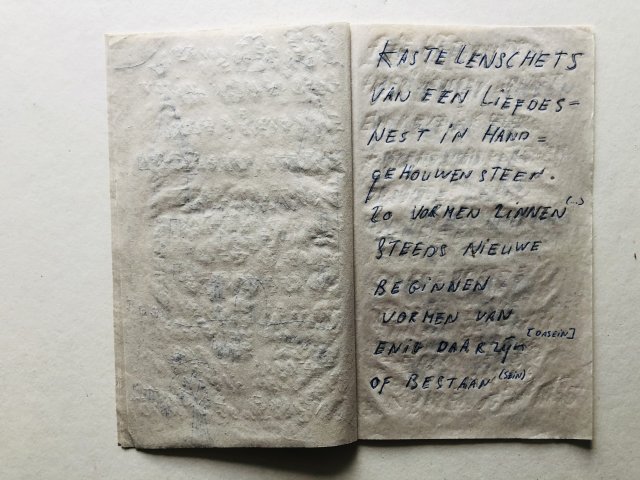 KASTELENSCHETS
VAN EEN LIEFDES=
NEST IN HAND=
GEHOUWEN STEEN.
ZO VORMEN ZINNEN (...)
STEEDS NIEUWE
BEGINNEN
VORMEN VAN
ENIG DAARZIJN [DASEIN]
OF BESTAAN (SEIN)